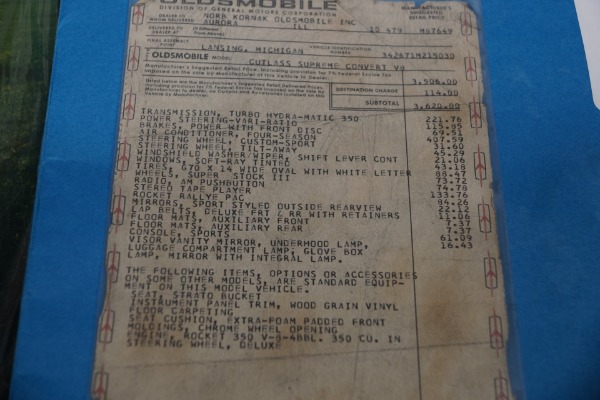 OLDSMOBILE
DIVISION OF GENERAL MOTORS CORPORATION
MANUFACTURER'S SUGGESTED RETAIL PRICE
DEALER TO WHOM DELIVERED
NORB KORNAK OLDSMOBILE INC
AURORA ILL 10 479 M07649
DELIVERED TO DEALER AT
FINAL ASSEMBLY POINT
LANSING, MICHIGAN
VEHICLE IDENTIFICATION NUMBER
342671M215030
OLDSMOBILE MODEL
CUTLASS SUPREME CONVERT V8
Manufacturer's Suggested Retail Price, including provision for 7% Federal Excise Tax
imposed on the sale by Manufacturer of this Vehicle to Dealer. 3,506.00
DESTINATION CHARGE 114.00
SUBTOTAL 3,620.00
TRANSMISSION, TURBO HYDRA-MATIC 350 221.76
POWER STEERING-VARI-RATIO 115.85
BRAKES, POWER WITH FRONT DISC 69.51
AIR CONDITIONER, FOUR-SEASON 407.59
STEERING WHEEL, CUSTOM-SPORT 31.60
STEERING WHEEL, TILT-AWAY 45.29
WINDSHIELD WASHER/WIPER, SHIFT LEVER CONT 21.06
WINDOWS, SOFT-RAY TINTED 43.18
TIRES, E70 X 14 WIDE OVAL WITH WHITE LETTER 88.47
WHEELS, SUPER STOCK III 73.72
RADIO, AM PUSHBUTTON 74.78
STEREO TAPE PLAYER 133.76
ROCKET RALLYE PAC 84.26
MIRRORS, SPORT STYLED OUTSIDE REARVIEW 22.12
LAP BELTS, DELUXE FRT & RR WITH RETAINERS 11.06
FLOOR MATS, AUXILIARY FRONT 7.37
FLOOR MATS, AUXILIARY REAR 7.37
CONSOLE, SPORTS 61.09
VISOR VANITY MIRROR, UNDERHOOD LAMP, 16.43
LUGGAGE COMPARTMENT LAMP, GLOVE BOX
LAMP, MIRROR WITH INTEGRAL LAMP.
THE FOLLOWING ITEMS, OPTIONS OR ACCESSORIES
ON SOME OTHER MODELS, ARE STANDARD EQUIP-
MENT ON THIS MODEL VEHICLE.
SEAT, STRATO BUCKET
INSTRUMENT PANEL TRIM, WOOD GRAIN VINYL
FLOOR CARPETING
SEAT CUSHION, EXTRA-FOAM PADDED FRONT
MOLDINGS, CHROME WHEEL OPENING
ENGINE, ROCKET 350 V-8-4BBL. 350 CU. IN
STEERING WHEEL, DELUXE